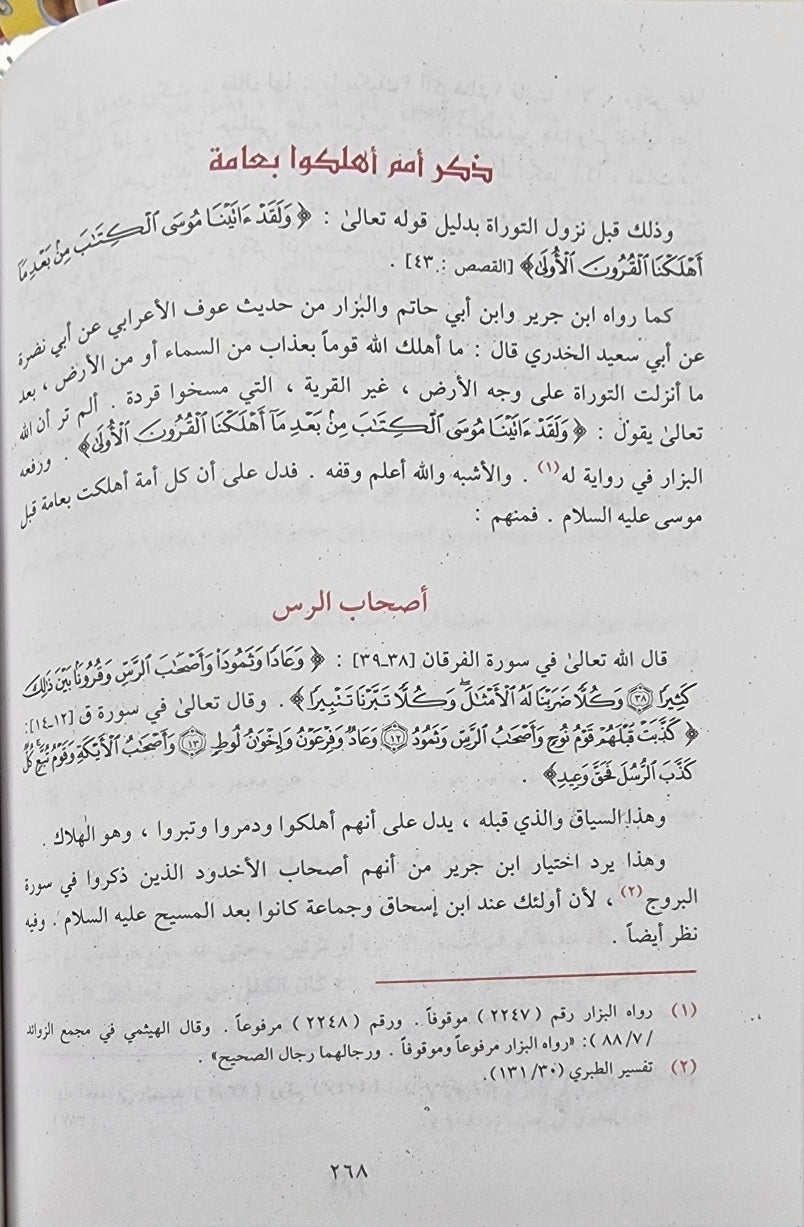 ذكر أمم أهلكوا بعامة
وذلك قبل نزول التوراة بدليل قوله تعالىٰ : ﴿ وَلَقَدْ ءَاتَيْنَا مُوسَى ٱلْكِتَٰبَ مِنۢ بَعْدِ مَآ
أَهْلَكْنَا ٱلْقُرُونَ ٱلْأُولَىٰ﴾ [القصص : ٤٣] .
كما رواه ابن جرير وابن أبي حاتم والبزار من حديث عوف الأعرابي عن أبي نضرة
عن أبي سعيد الخدري قال : ما أهلك الله قوماً بعذاب من السماء أو من الأرض ، بعد
ما أنزلت التوراة على وجه الأرض ، غير القرية ، التي مسخوا قردة . ألم تر أن الله
تعالىٰ يقول : ﴿ وَلَقَدْ ءَاتَيْنَا مُوسَى ٱلْكِتَٰبَ مِنۢ بَعْدِ مَآ أَهْلَكْنَا ٱلْقُرُونَ ٱلْأُولَىٰ﴾ . ورفعه
البزار في رواية له(١) . والأشبه والله أعلم وقفه . فدل على أن كل أمة أهلكت بعامة قبل
موسى عليه السلام . فمنهم :
أصحاب الرس
قال الله تعالىٰ في سورة الفرقان [٣٨ـ٣٩] : ﴿ وَعَادًا وَثَمُودَا۟ وَأَصْحَٰبَ ٱلرَّسِّ وَقُرُونًۢا بَيْنَ ذَٰلِكَ
كَثِيرًا ٣٨ وَكُلًّا ضَرَبْنَا لَهُ ٱلْأَمْثَٰلَ ۖ وَكُلًّا تَبَّرْنَا تَتْبِيرًا ﴾ . وقال تعالىٰ في سورة ق [١٢ـ١٤]:
﴿ كَذَّبَتْ قَبْلَهُمْ قَوْمُ نُوحٍ وَأَصْحَٰبُ ٱلرَّسِّ وَثَمُودُ ١٢ وَعَادٌ وَفِرْعَوْنُ وَإِخْوَٰنُ لُوطٍ ١٣ وَأَصْحَٰبُ ٱلْأَيْكَةِ وَقَوْمُ تُبَّعٍ ۚ كُلٌّ
كَذَّبَ ٱلرُّسُلَ فَحَقَّ وَعِيدِ﴾ .
وهذا السياق والذي قبله ، يدل على أنهم أهلكوا ودمروا وتبروا ، وهو الهلاك .
وهذا يرد اختيار ابن جرير من أنهم أصحاب الأخدود الذين ذكروا في سورة
البروج(٢) ، لأن أولئك عند ابن إسحاق وجماعة كانوا بعد المسيح عليه السلام . وفيه
نظر أيضاً .
(١) رواه البزار رقم (٢٢٤٧ ) موقوفاً . ورقم (٢٢٤٨ ) مرفوعاً . وقال الهيثمي في مجمع الزوائد
/ ٨٨/٧ ): «رواه البزار مرفوعاً وموقوفاً . ورجالهما رجال الصحيح» .
(٢) تفسير الطبري (١٣١/٣٠).
٢٦٨